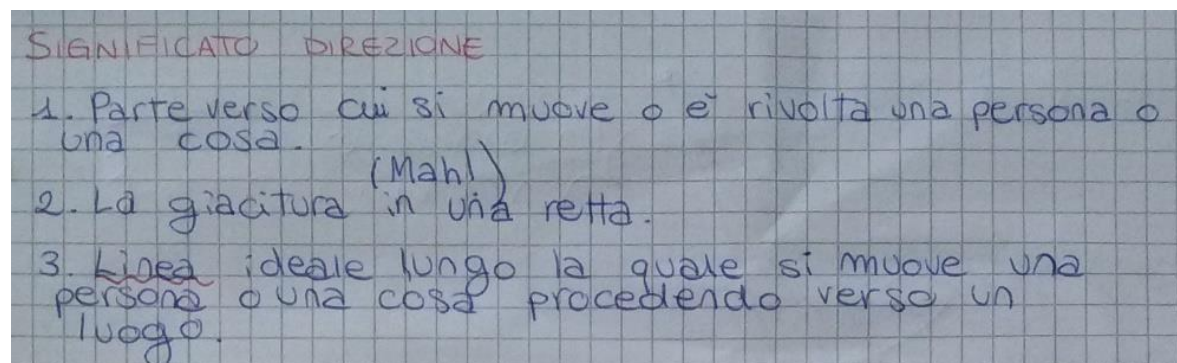 SIGNIFICATO DIREZIONE
1. Parte verso cui si muove o è rivolta una persona o
una cosa.
(Mah!)
2. La giacitura in una retta.
3. Linea ideale lungo la quale si muove una
persona o una cosa procedendo verso un
luogo.